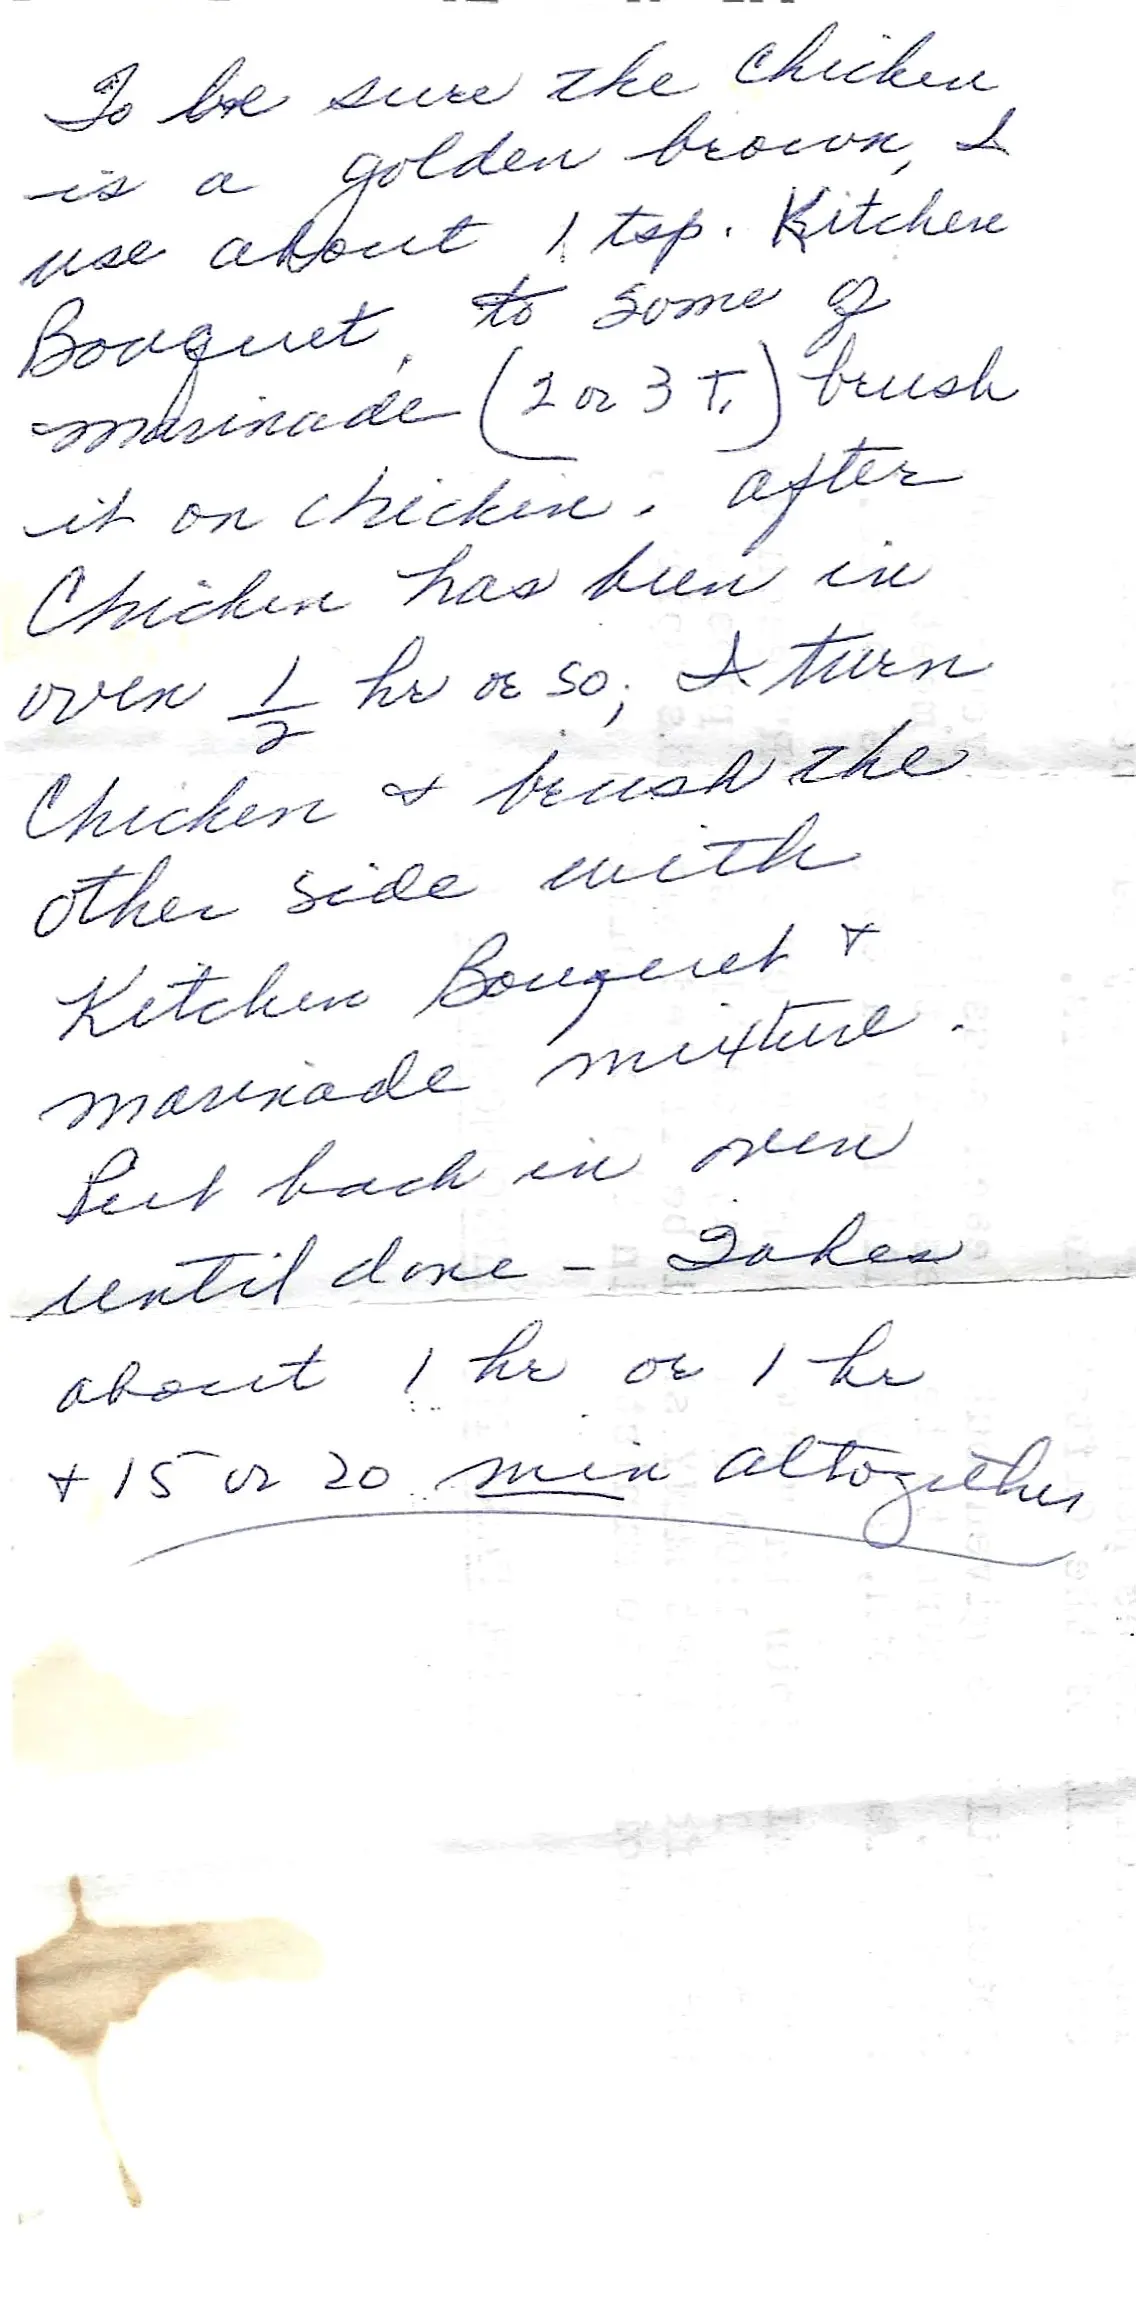 To be sure the chicken
is a golden brown, I
use about 1 tsp. Kitchen
Bouquet, to some of
marinade (2 or 3 T.) brush
it on chicken. after
Chicken has been in
oven 1/2 hr or so; I turn
Chicken + brush the
other side with
Kitchen Bouquet +
marinade mixture.
Put back in oven
until done - Takes
about 1 hr or 1 hr
+ 15 or 20 min altogether